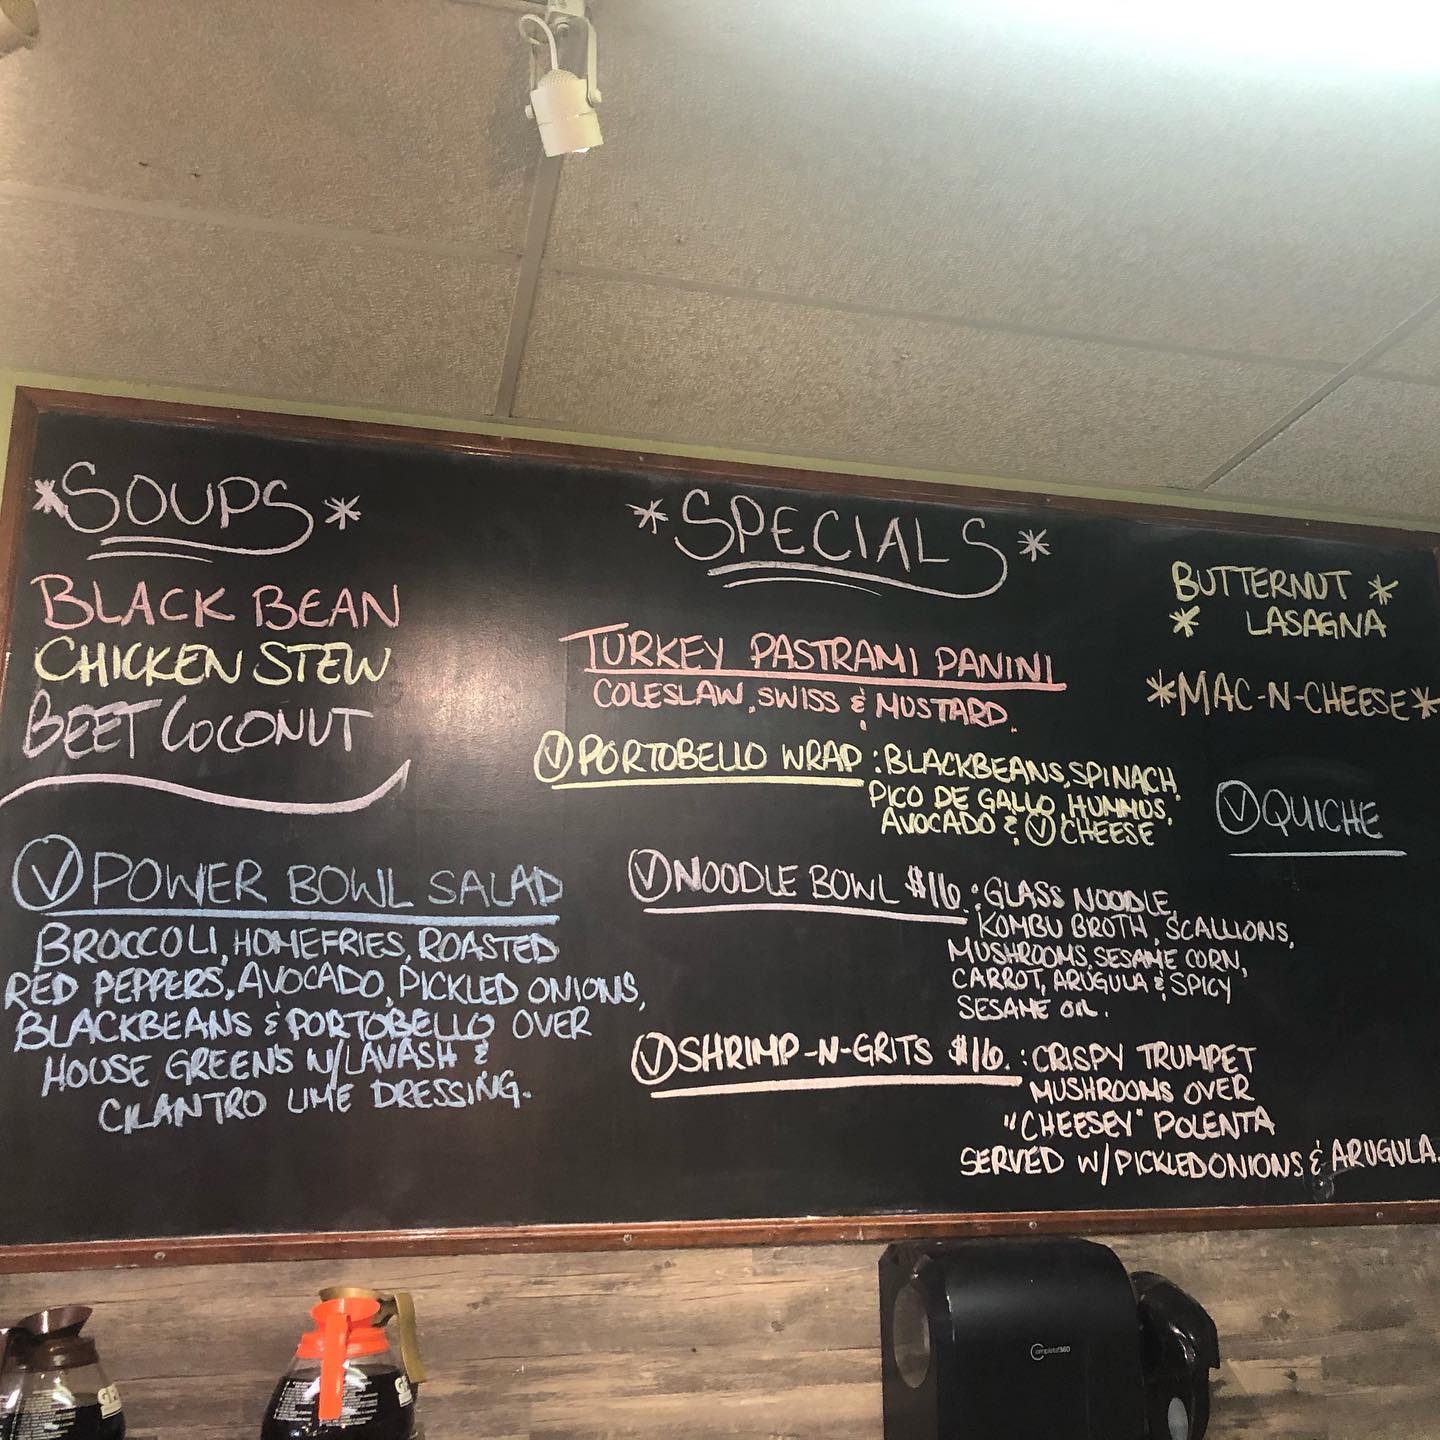 *SOUPS*
BLACK BEAN
CHICKEN STEW
BEET COCONUT
Ⓥ POWER BOWL SALAD
BROCCOLI, HOMEFRIES, ROASTED
RED PEPPERS, AVOCADO, PICKLED ONIONS,
BLACKBEANS & PORTOBELLO OVER
HOUSE GREENS W/LAVASH &
CILANTRO LIME DRESSING.
*SPECIALS*
TURKEY PASTRAMI PANINI
COLESLAW, SWISS & MUSTARD.
Ⓥ PORTOBELLO WRAP : BLACKBEANS, SPINACH,
PICO DE GALLO, HUMMUS,
AVOCADO & Ⓥ CHEESE
Ⓥ NOODLE BOWL $16. : GLASS NOODLE,
KOMBU BROTH, SCALLIONS,
MUSHROOMS, SESAME CORN,
CARROT, ARUGULA & SPICY
SESAME OIL.
Ⓥ SHRIMP-N-GRITS $16. : CRISPY TRUMPET
MUSHROOMS OVER
"CHEESEY" POLENTA
SERVED W/PICKLED ONIONS & ARUGULA.
BUTTERNUT *
* LASAGNA
*MAC-N-CHEESE*
Ⓥ QUICHE
Complete360